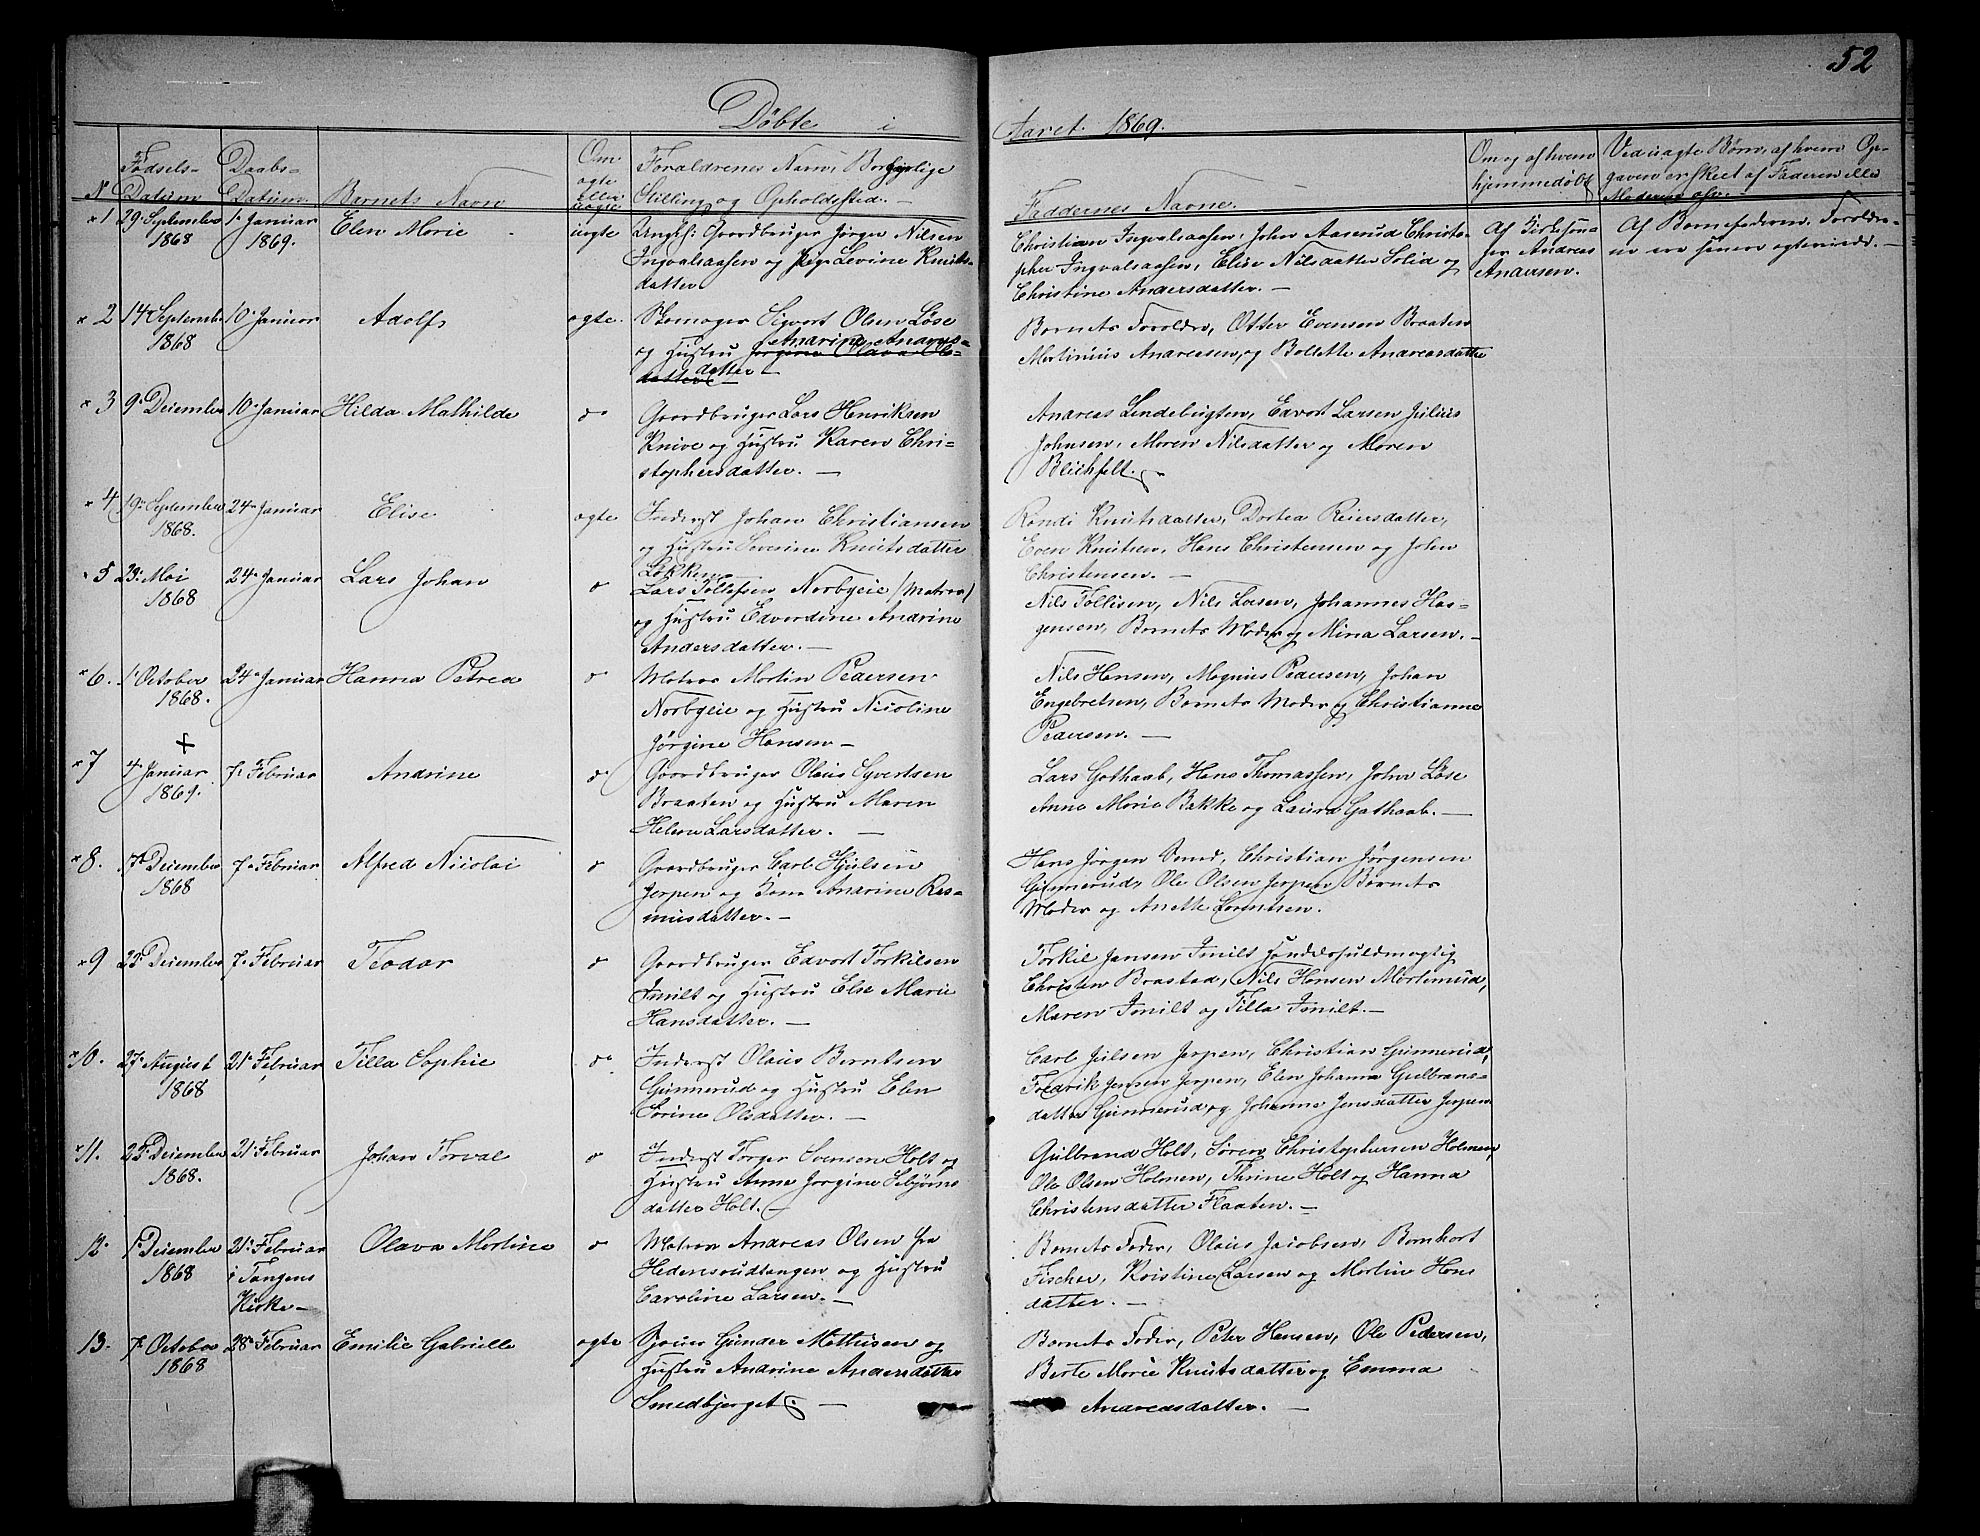 52
Døbte i Aaret 1869.
N Fødsels-Datum Daabs-Datum Barnets Navn Om ægte eller uægte Forældrenes Navn, Borgerlige Stilling og Opholdssted. Faddernes Navne. Om og af hvem hjemmedøbt Ved uægte Børn, af hvem Opgaven er skeet af Faderen eller Moderen osv.
1 29 September 1868 1 Januar 1869. Elen Marie uægte
Ungk: Gaardbruger Jørgen Nilsen
Ingvalsaasen og Pige Levine Knuts-
datter
Christian Ingvalsaasen, John Aaserud Christo-
pher Ingvalsaasen, Elise Nilsdatter Solid og
Christine Andersdatter. —
Af Kirkesan-
ger Andreas
Andersen.
Af Barnefaderen. Foreldre-
ne ere senere ægteviede. —
2 14 Septemb: 1868 10 Januar Adolf ægte.
Skomager Sigvart Olsen Løse
og Hustru Andrine Andreas-
datter —
Barnets Foreldre, Otter Evensen Braaten
Martinius Andreasen, og Bolette Andreasdatter
3 9 December 10 Januar Hilda Mathilde do
Gaardbruger Lars Henriksen
Knive og Hustru Karen Chri-
stophersdatter. —
Andreas Lindebugten, Edvart Larsen Julius
Johnsen, Maren Nilsdatter og Maren
Blichfelt. —
4 19 September 1868. 24 Januar Elise ægte
Inderst Johan Christiansen
og Hustru Severine Knutsdatter
Løkken —
Randi Knutsdatter, Dortea Reiersdatter,
Even Knutsen, Hans Christensen og John
Christensen. —
5 23 Mai 1868 24 Januar Lars Johan do
Lars Tollefsen Norbyeie (Matros)
og Hustru Edvardine Andrine
Andersdatter. —
Nils Tollisen, Nils Larsen, Johannes Haa-
gensen, Barnets Moder og Mina Larsen. —
6. 1 October 1868. 24 Januar Hanna Petrea do
Matros Martin Pedersen
Norbyeie og Hustru Nicoline
Jørgine Hansen —
Nils Hansen, Magnus Pedersen, Johan
Engebretsen, Barnets Moder og Christianne
Pedersen. —
7 4 Januar 1869. 7 Februar Andrine do
Gaardbruger Olaus Syvertsen
Braaten og Hustru Maren
Helene Larsdatter. —
Lars Gothaab, Hans Thomassen, John Løse
Anne Marie Bakke og Laura Gothaab. —
8. 17 December 1868 7 Februar Alfred Nicolai do
Gaardbruger Carl Hjulsen
Jerpen og Kone Andrine Ras-
musdatter. —
Hans Jørgen Smed, Christian Jørgensen
Gunnerud, Ole Olsen Jerpen Barnets
Moder og Anette Lorentsen.
9 23 December 7 Februar Teodor do
Gaardbruger Edvart Torkilsen
Smilt og Hustru Else Marie
Hansdatter. —
Torkil Jansen Smilt Handelsfuldmægtig
Christen Brastad, Nils Hansen Mortemud,
Maren Smilt og Tilla Smilt. —
10. 27 August 1868 21 Februar Tilla Sophie do
Inderst Olaus Berntsen
Gunnerud og Hustru Elen
Sørine Olsdatter. —
Carl Julsen Jerpen, Christian Gunnerud,
Fredrik Jensen Jerpen, Elen Johanna Gulbrans-
datter Gunnerud og Johanne Jensdatter Jerpen
11. 23 December 1868. 21 Februar Johan Torval do
Inderst Torger Svensen Holt og
Hustru Anne Jorgine Sebjørns
datter Holt. —
Gulbrand Holt, Søren Christophersen Holmen,
Ole Olsen Holmen, Thrine Holt og Hanna
Christensdatter Flaaten. —
12 1 December 1868 21 Februar i Tangens Kirke — Olava Martine do
Matros Andreas Olsen fra
Hedensrudtangen og Hustru
Caroline Larsen. —
Barnets Fader, Olaus Jacobsen, Bernhart
Fischer, Kristine Larsen og Martin Hans
datter. —
13. 7 October 1868 28 Februar Emilie Gabrielle ægte
Gunder Mathisen og
Hustru Andrine Andersdatter
Smedbjerget. —
Barnets Fader, Peter Hansen, Ole Pedersen,
Berte Marie Knutsdatter og Emma
Andreasdatter. —